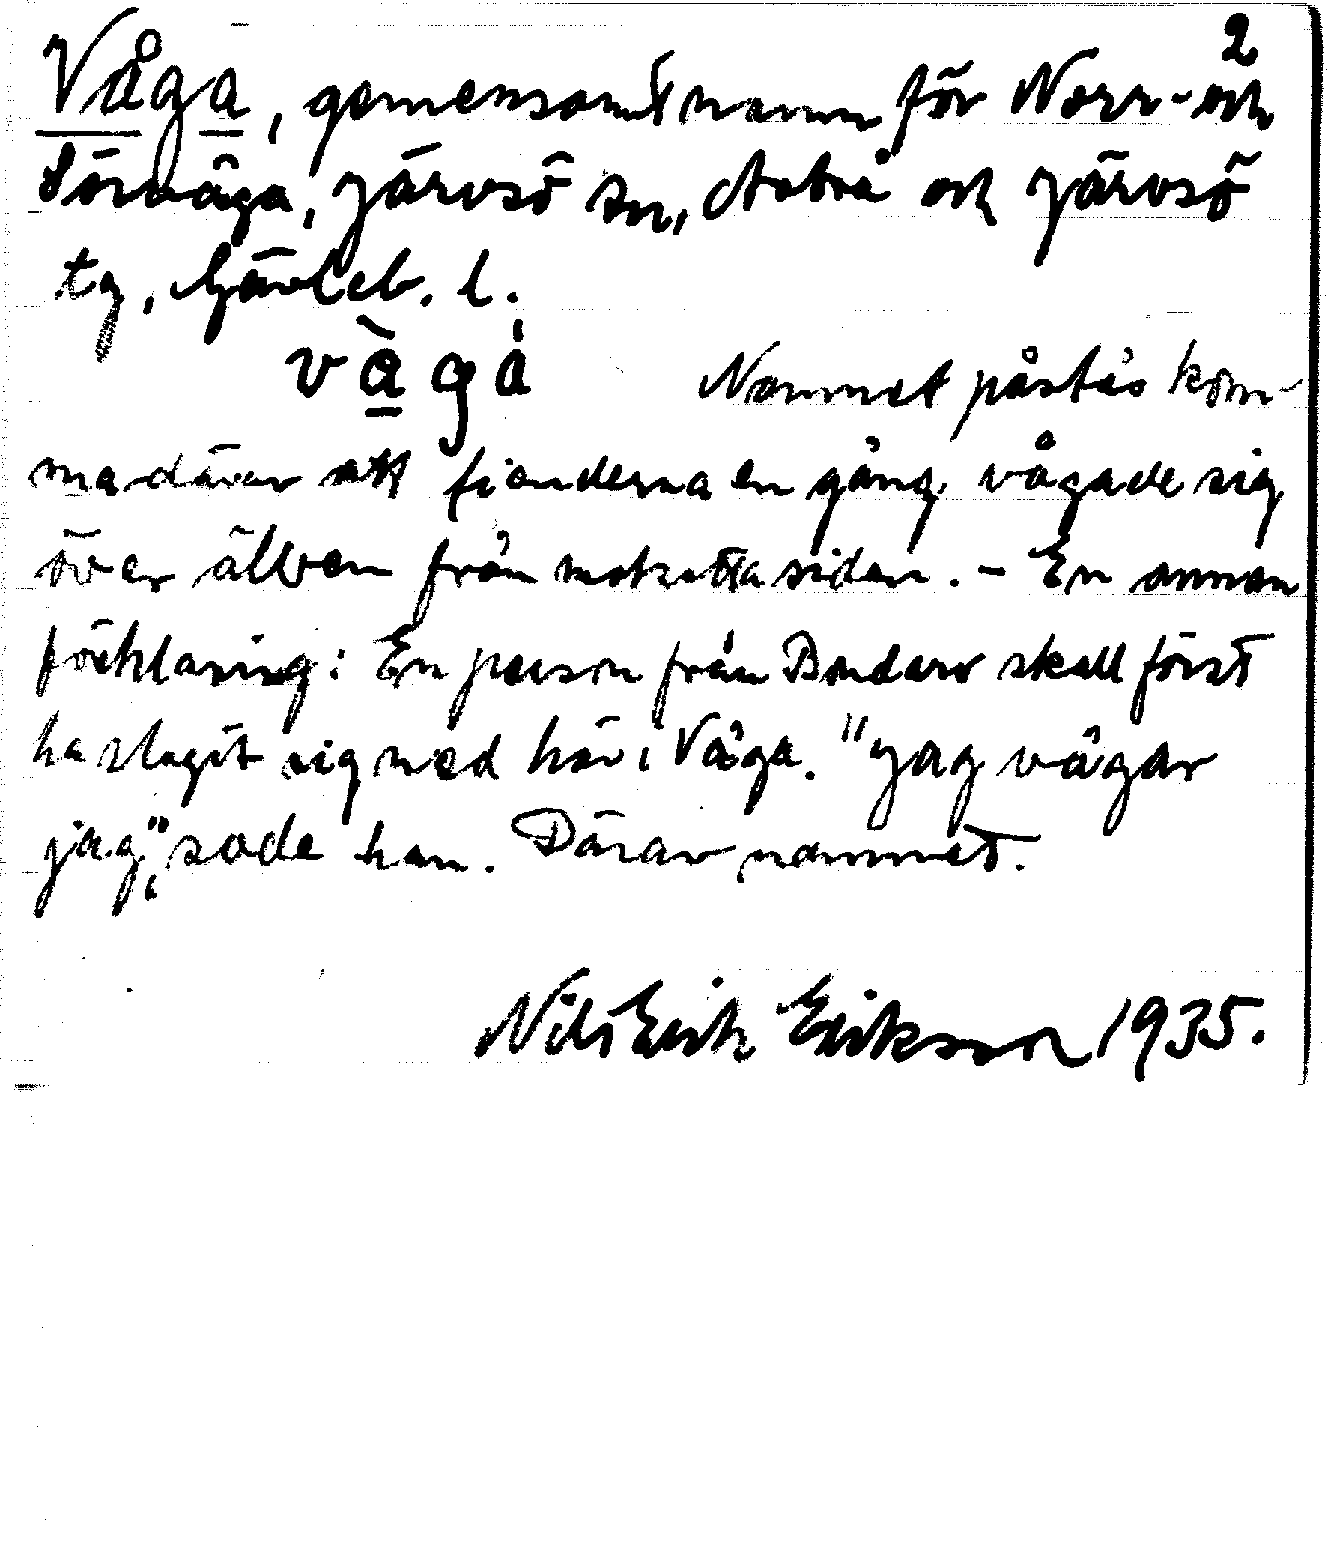 2
Våga, gemensamt namn för Norr- och
Sörvåga, Järvsö sn, Arbrå och Järvsö
tg, Gävleb. l.
vàgá Namnet påstås kom-
ma därav att fienderna en gång vågade sig
över älven från motsatta sidan. - En annan
förklaring: En person från Bondarv skall först
ha slagit sig ned här i Våga. "Jag vågar
jag", sade han. Därav namnet.
Nils Erik Eriksson 1935.